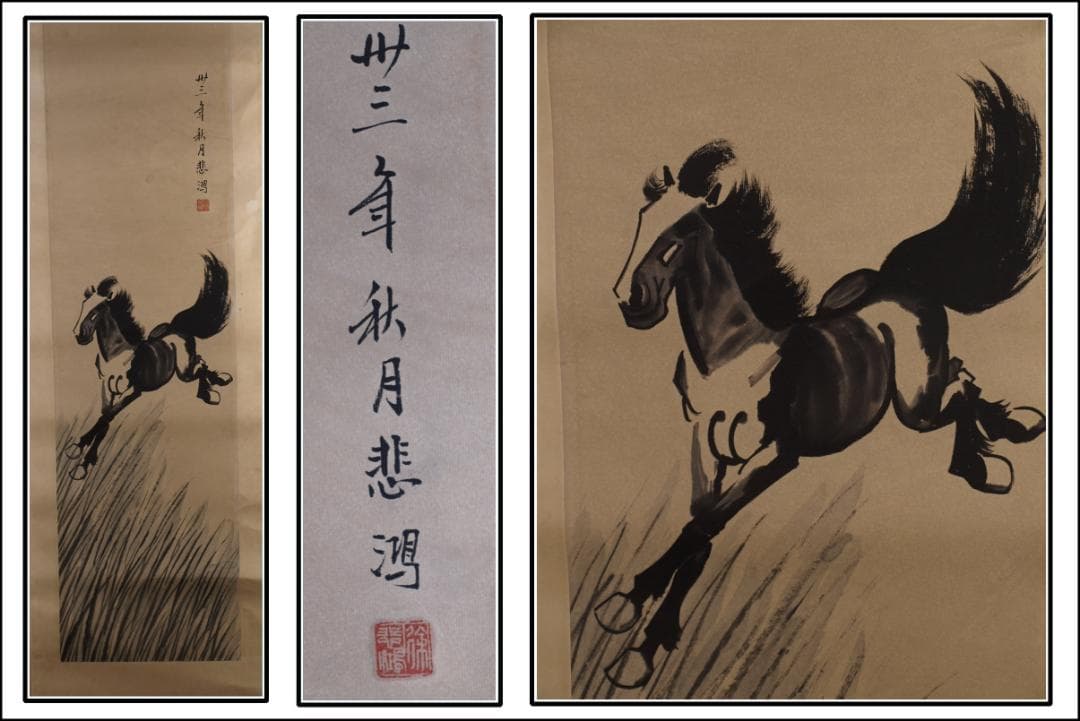 卅三年秋月悲鴻
卅三年秋月悲鴻
徐悲鴻